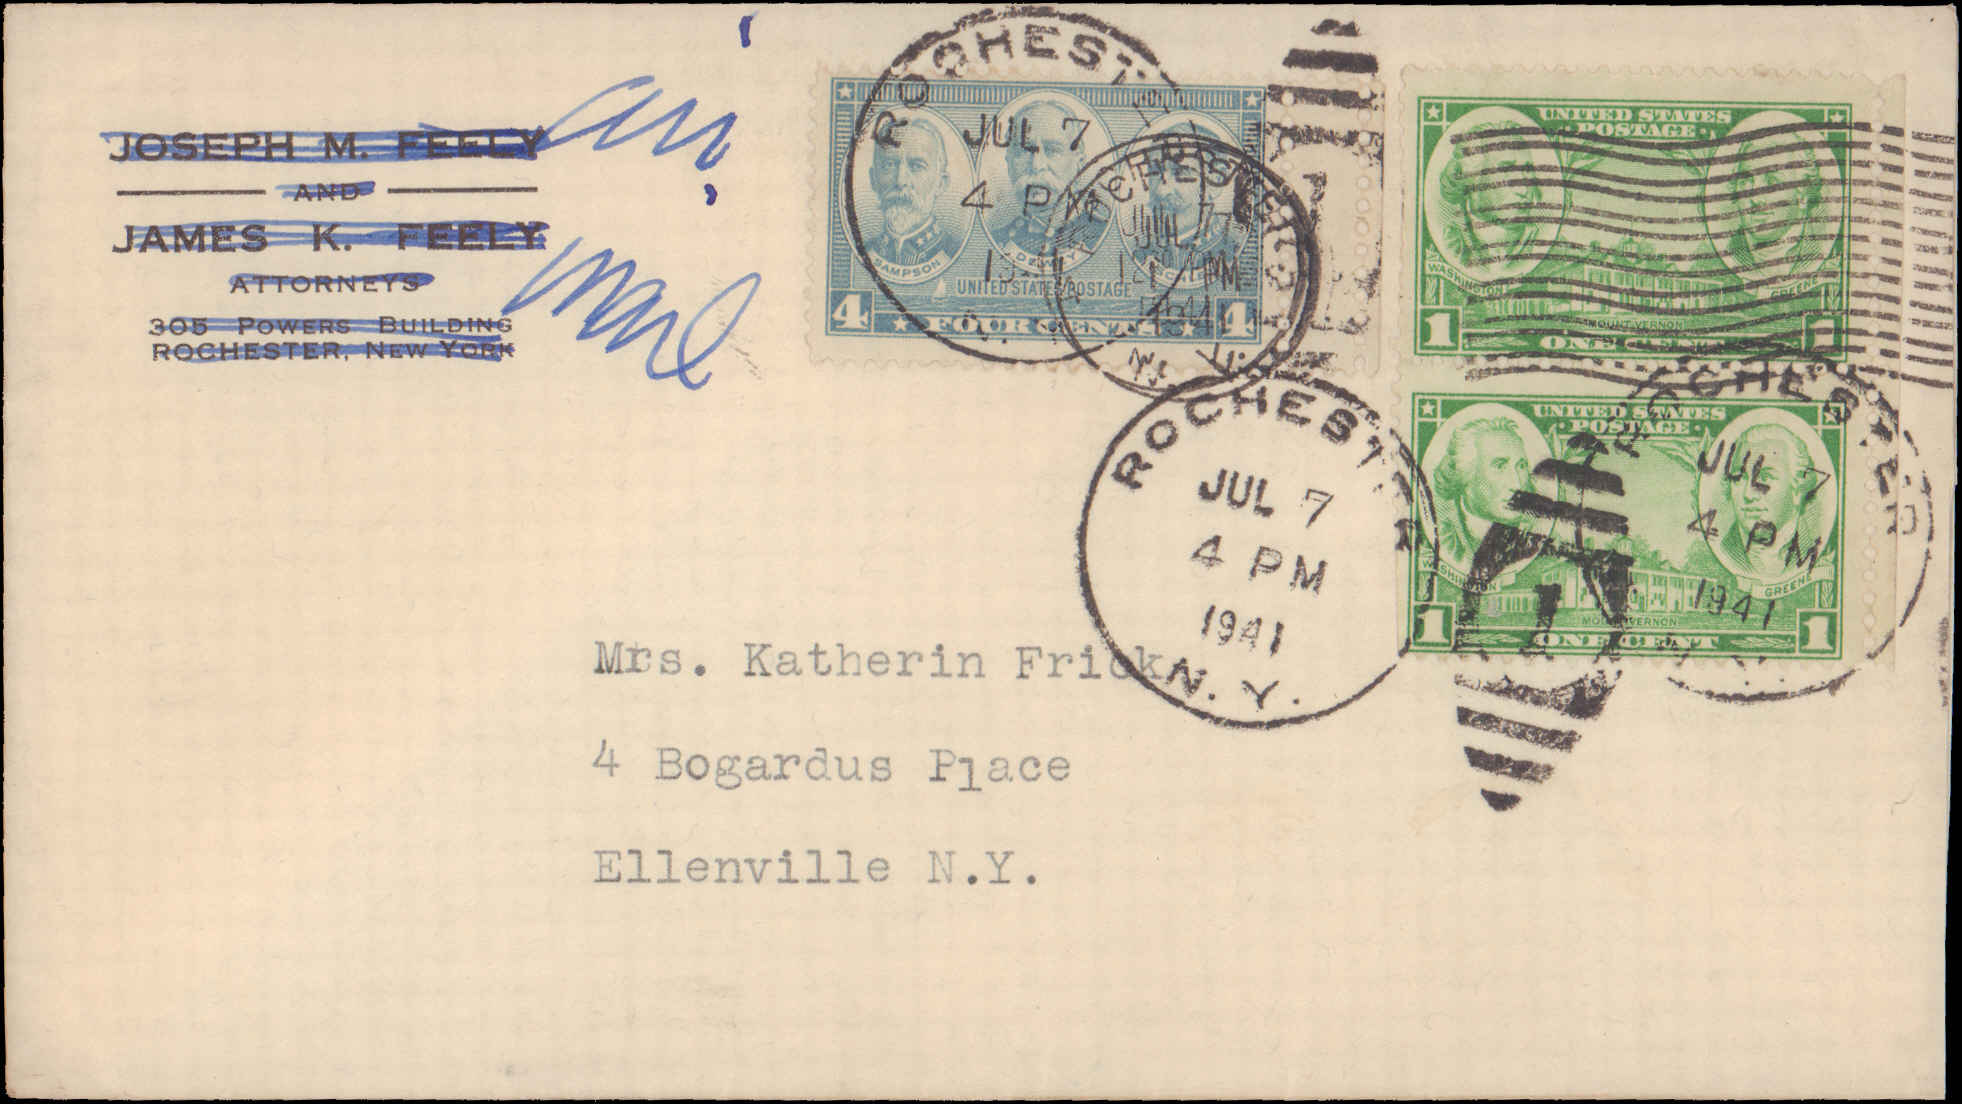 JOSEPH M. FEELY
AND
JAMES K. FEELY
ATTORNEYS
305 POWERS BUILDING
ROCHESTER, NEW YORK
air
mail
4 4
SAMPSON DEWEY
UNITED STATES POSTAGE
4 FOUR CENTS 4
ROCHESTER
JUL 7
4 PM
N.Y.
ROCHESTER
JUL 7
1941
N.Y.
UNITED STATES
POSTAGE
WASHINGTON GREENE
MOUNT VERNON
1 ONE CENT 1
UNITED STATES
POSTAGE
WASHINGTON GREENE
MOUNT VERNON
1 ONE CENT 1
ROCHESTER
JUL 7
4 PM
1941
N.Y.
ROCHESTER
JUL 7
4 PM
1941
Mrs. Katherin Frick
4 Bogardus Place
Ellenville N.Y.